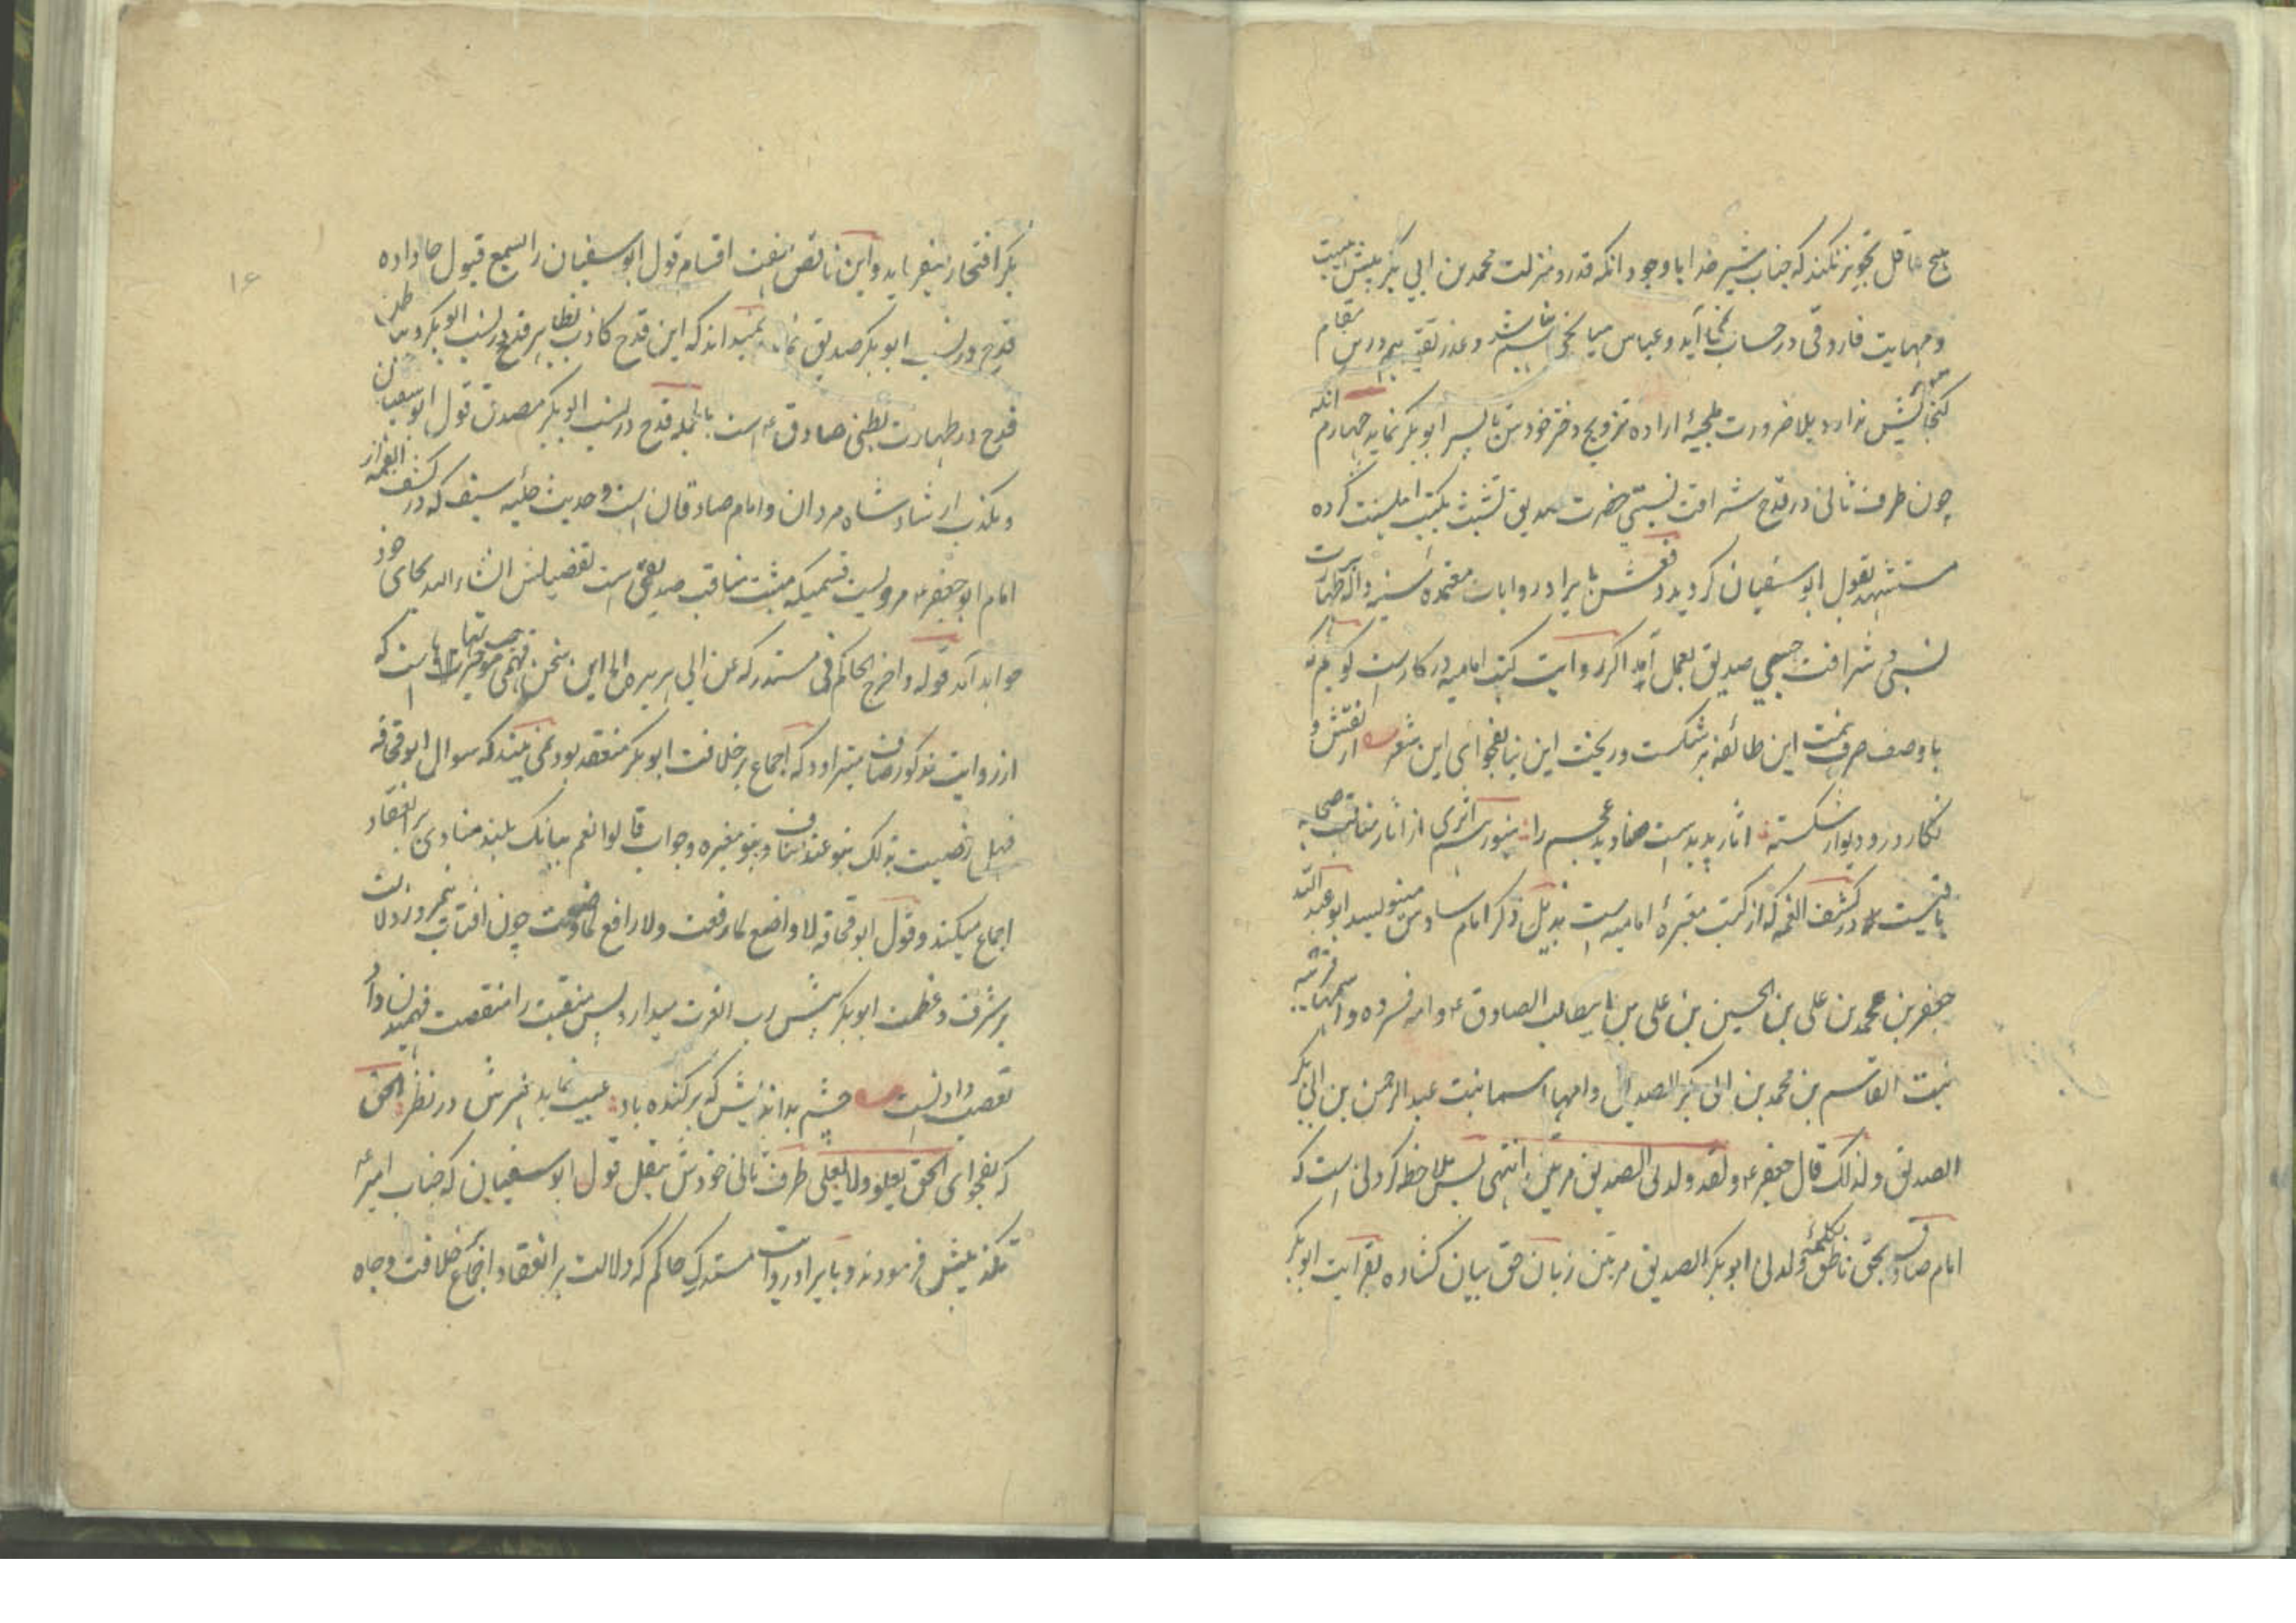 هیچ عاقل تجویز نکند که جناب شیر خدا با وجود انکه قدر و منزلت محمد بن ابی بکر پیش
و مهابت فاروقی در حساب نمی آید و عباس میانجی باشد و عذر تقیه هم درین مقام
گنجایش ندارد بلا ضرورت ملجیه اراده تزویج دختر خودش با پسر ابو بکر نماید چهارم انکه
چون طرف ثانی در قدح شرافت نسبتی حضرت صدیق تشبث بکتب اهلسنت کرده
مستشهد بقول ابو سفیان گردید دفعش بایراد روایات معتمده سنیه واله طهارت
نسبی و شرافت حسبی صدیق بعمل آمد اگر روایت کتب امامیه درکار ست گویم که
با وصف صرف همت این طائفه بر شکست و ریخت این بنا بفحوای این شعر از نقش و
نگار در و دیوار شکسته اثار پدیدست صنادید عجم را هنوز اثری از اثار مناقب صحابه
باقیست در کشف الغمه که از کتب معتبره امامیه است بذیل ذکر امام سادس مینویسد ابو عبد الله
جعفر بن محمد بن علی بن الحسین بن علی بن ابیطالب الصادق و امه فروه و
بنت القاسم بن محمد بن ابی بکر الصدیق و امها اسما بنت عبد الرحمن بن ابی بکر
الصدیق و لذلک قال جعفر و لقد ولدنی الصدیق مرتین انتهی بس ملاحظه کردنی است که
امام صادق بحق ناطق بکلمه ولدنی ابو بکر الصدیق مرتین زبان حق بیان گشاده بقرابت ابو بکر
بکر افتخار میفرماید و این ناقص اقسام قول ابو سفیان را بسمع قبول جا داده
قدح در نسب ابو بکر صدیق نماید نمیداند که این قدح کاذب بظاهر قدح در نسب ابو بکر و
قدح در طهارت بطنی صادق است بالجمله قدح در نسب ابو بکر مصدق قول ابو سفیان
و مکذب ارشاد شاه مردان و امام صادقان است و حدیث حلیه سیف که در کشف الغمه از
امام ابو جعفر مرویست قسمیکه مثبت مناقب صدیقی است تفصیلش انشاء الله بجای خود
خواهد آمد قوله و اخرج الحاکم فی مستدرکه عن ابی هریره الخ این سخن فهمی است که
از روایت مذکور صاف میتراود که اجماع بر خلافت ابو بکر منعقد بود نمی بیند که سوال ابو قحافه
فهل رضیت بذلک بنو عبد مناف و بنو مغیره و جواب قالوا نعم ببانک بلند منادی بر انعقاد
اجماع میکند و قول ابو قحافه لا واضع لما رفعت و لا رافع لما وضعت چون افتاب نیمروز دلالت
بر شرف و عظمت ابو بکر پیش رب العزت میدارد پس منقبت را منقصت فهمیدن داد
تعصب دادنست چشم بداندیش که برکنده باد عیب نماید هنرش در نظر الحق
که بفحوای الحق یعلو و لا یعلی طرف ثانی خودش بنقل قول ابو سفیان که جناب امیر
تکذیبش فرمودند و بایراد روایت مستدرک حاکم که دلالت بر انعقاد اجماع خلافت و جاه
۱۶